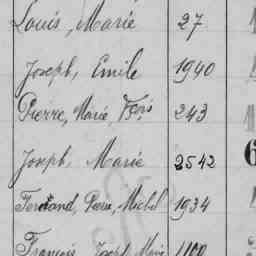 Louis, Marie 27
Joseph, Emile 1940
Pierre, Marie, Fçois 243
Joseph, Marie 2542
6
Ferdinand, Pierre, Michel 1934
François, Joseph, Marie 1100